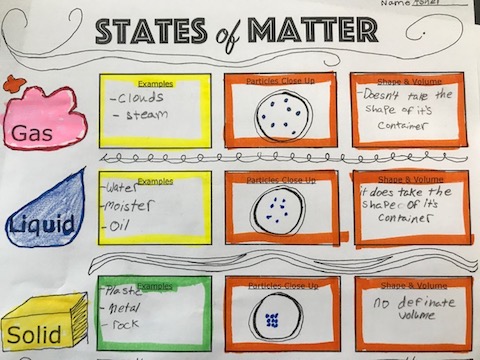 Name
STATES of MATTER
Gas
Examples
- Clouds
- steam
Particles Close Up
Shape & Volume
- Doesn't take the
shape of it's
container
Liquid
Examples
- Water
- Moister
- Oil
Particles Close Up
Shape & Volume
it does take the
shape of It's
container
Solid
Examples
- Plastic
- Metal
- rock
Particles Close Up
Shape & Volume
no definate
volume